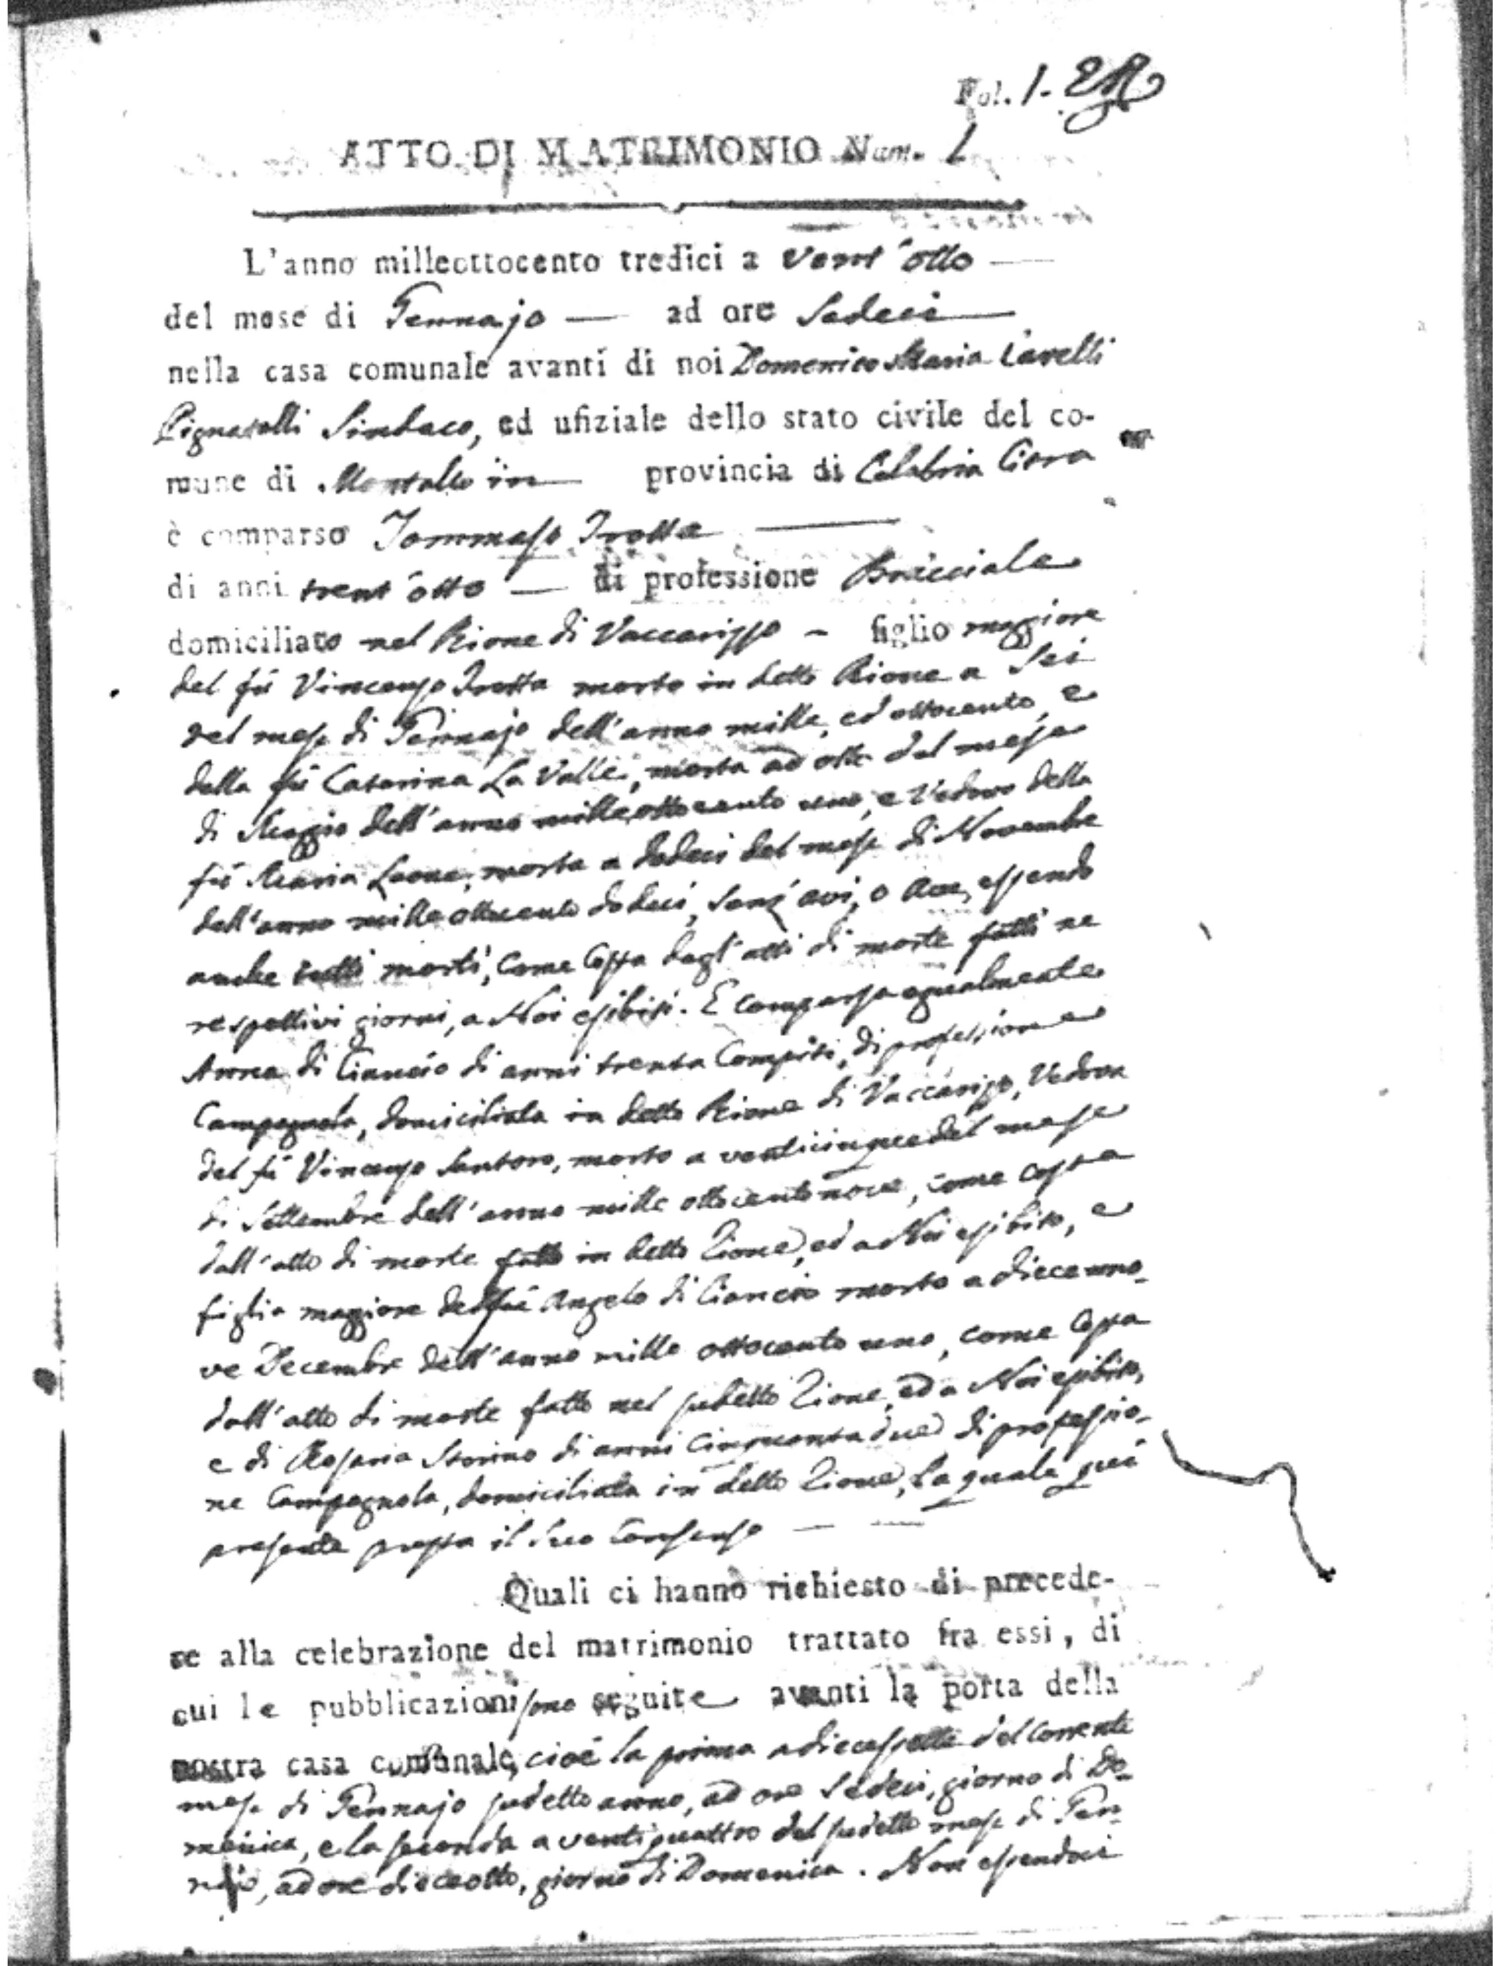 Fol. 1.
ATTO DI MATRIMONIO Num. 1
L'anno milleottocento tredici a vent'otto
del mese di Gennajo — ad ore Sedeci
nella casa comunale avanti di noi Domenico Maria Cavelli
Pignatelli Sindaco, ed ufiziale dello stato civile del co-
mune di Montalto in provincia di Calabria Citra
è comparso Tommaso Trotta
di anni trent'otto — di professione Bracciale
domiciliato nel Rione di Vaccarizzo – figlio maggiore
del fù Vincenzo Trotta morto in detto Rione a Sei
del mese di Gennajo dell'anno mille, ed ottocento, e
della fù Catarina La Valle, morta ad otto del mese
di Maggio dell'anno milleottocento uno, e Vedovo della
fù Maria Leone, morta a dodeci del mese di Novembre
dell'anno mille ottocento dodeci, senz'avi, o Ave, essendo
anche tutti morti, come costa dagl'atti di morte fatti ne
respettivi giorni, a Noi esibiti. È comparsa egualmente
Anna di Ciancio di anni trenta Compiti, di professione
Campagnola, domiciliata in detto Rione di Vaccarizzo, Vedova
del fù Vincenzo Santoro, morto a venticinque del mese
di Settembre dell'anno mille ottocento nove, come costa
dall'atto di morte fatto in detto Rione, ed a Noi esibito, e
figlia maggiore del fù Angelo di Ciancio morto a diecenno-
ve Decembre dell'anno mille ottocento uno, come costa
dall'atto di morte fatto nel sudetto Rione, ed a Noi esibito,
e di Rosaria Storino di anni Cinquanta due di professio-
ne Campagnola, domiciliata in detto Rione, la quale quì
presente presta il suo Consenso
Quali ci hanno richiesto di precede-
re alla celebrazione del matrimonio trattato fra essi, di
cui le pubblicazioni sono seguite avanti la porta della
nostra casa comunale, cioè la prima a diecessette del corrente
mese di Gennajo sudetto anno, ad ore Sedeci, giorno di Do-
menica, e la seconda a ventiquattro del sudetto mese di Gen-
najo, ad ore dieceotto, giorno di Domenica. Non essendoci